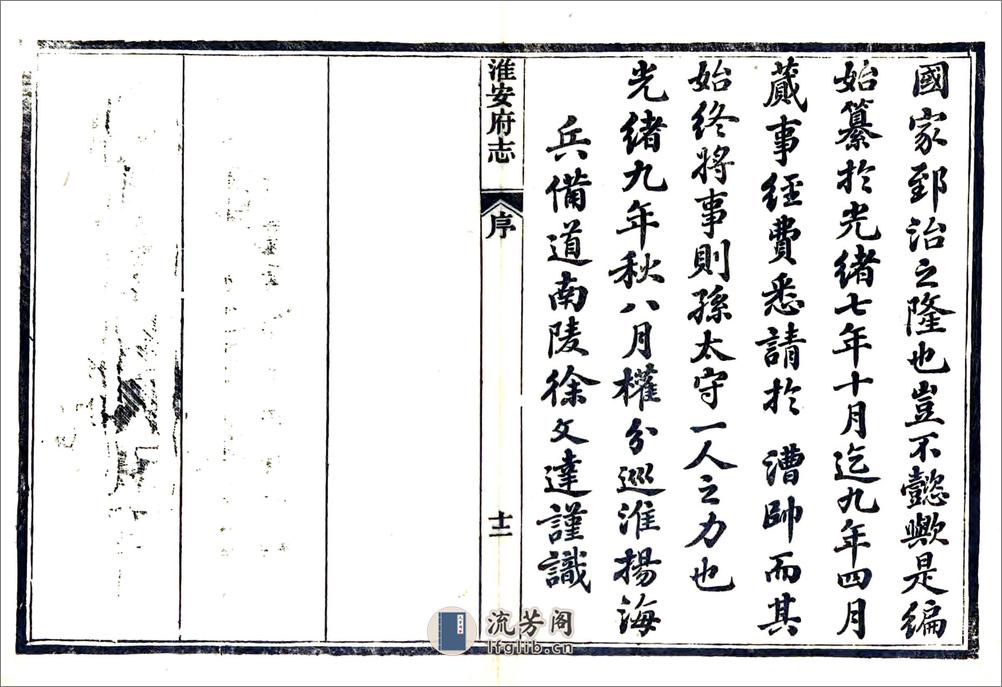 國家郅治之隆也豈不懿歟是編
始纂於光緒七年十月迄九年四月
蕆事經費悉請於 漕帥而其
始終將事則孫太守一人之力也
光緒九年秋八月權分巡淮揚海
兵備道南陵徐文達謹識
淮安府志
序
十二
流芳阁
lfglib.cn